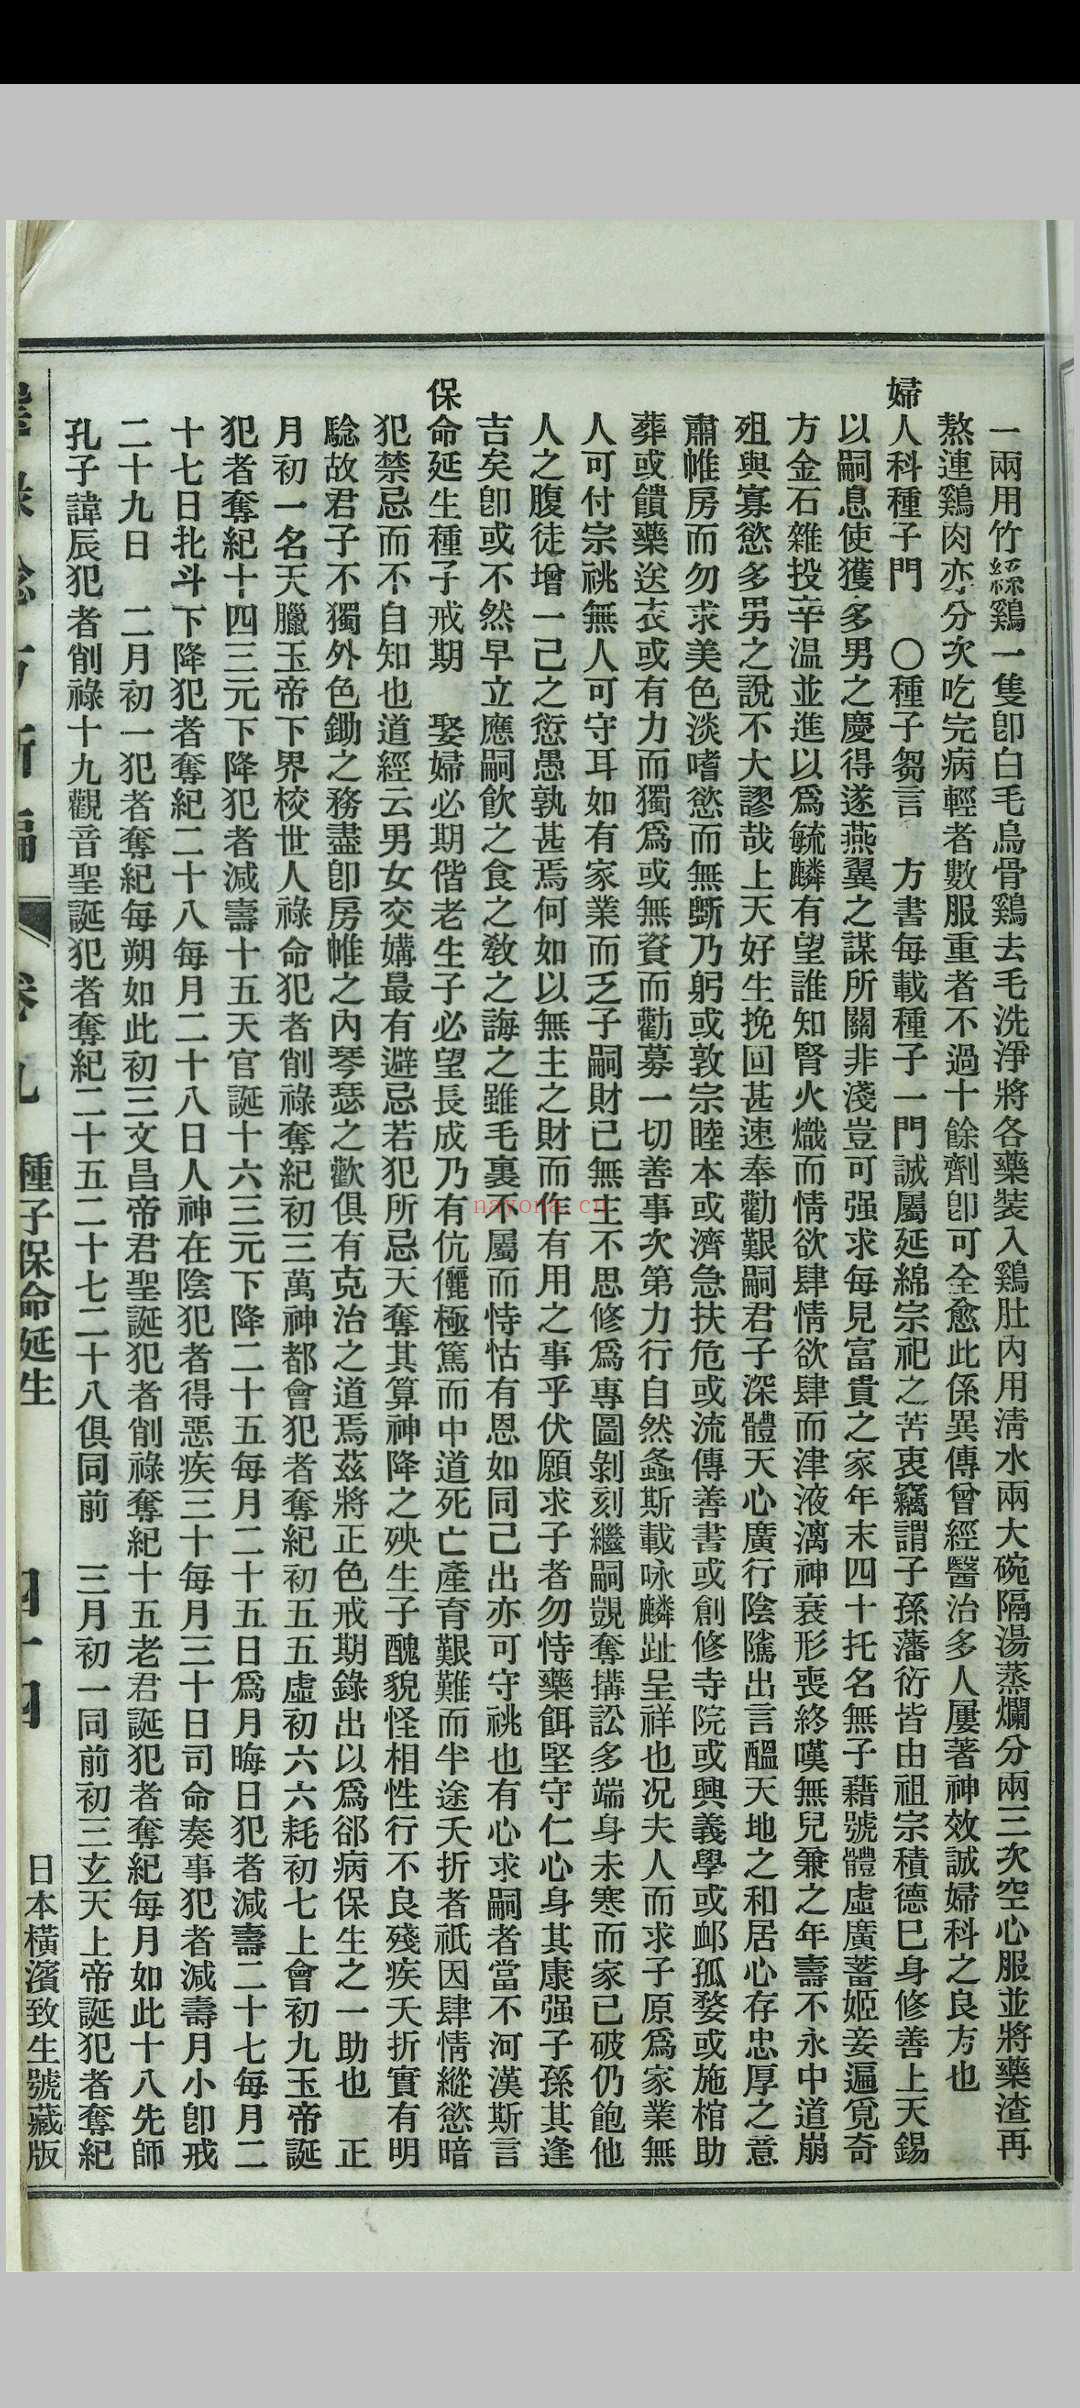 一兩用竹絲鷄一隻卽白毛烏骨鷄去毛洗淨將各藥裝入鷄肚內用清水兩大碗隔湯蒸爛分兩三次空心服並將藥渣再
熬連鷄肉亦分次吃完病輕者數服重者不過十餘劑卽可全愈此係異傳曾經醫治多人屢著神效誠婦科之良方也
婦人科種子門　〇種子芻言　方書每載種子一門誠屬延綿宗祀之苦衷竊謂子孫藩衍皆由祖宗積德巳身修善上天錫
以嗣息使獲多男之慶得遂燕翼之謀所關非淺豈可强求每見富貴之家年末四十托名無子藉號體虛廣蓄姬妾遍覓奇
方金石雜投辛温並進以爲毓麟有望誰知腎火熾而情欲肆情欲肆而津液漓神衰形喪終嘆無兒兼之年壽不永中道崩
殂與寡慾多男之說不大謬哉上天好生挽回甚速奉勸艱嗣君子深體天心廣行陰隲出言醞天地之和居心存忠厚之意
肅帷房而勿求美色淡嗜慾而無斲乃躬或敦宗睦本或濟急扶危或流傳善書或創修寺院或興義學或卹孤婺或施棺助
葬或饋藥送衣或有力而獨爲或無資而勸募一切善事次第力行自然螽斯載咏麟趾呈祥也况夫人而求子原爲家業無
人可付宗祧無人可守耳如有家業而乏子嗣財已無主不思修爲專圖剝刻繼嗣覬奪搆訟多端身未寒而家已破仍飽他
人之腹徒增一己之愆愚孰甚焉何如以無主之財而作有用之事乎伏願求子者勿恃藥餌堅守仁心身其康强子孫其逢
吉矣卽或不然早立應嗣飲之食之敎之誨之雖毛裏不屬而恃怙有恩如同己出亦可守祧也有心求嗣者當不河漢斯言
保命延生種子戒期　娶婦必期偕老生子必望長成乃有伉儷極篤而中道死亡產育艱難而半途夭折者祇因肆情縱慾暗
犯禁忌而不自知也道經云男女交媾最有避忌若犯所忌天奪其算神降之殃生子醜貌怪相性行不良殘疾夭折實有明
騐故君子不獨外色鋤之務盡卽房帷之內琴瑟之歡俱有克治之道焉茲將正色戒期錄出以爲郤病保生之一助也　正
月初一名天臘玉帝下界校世人祿命犯者削祿奪紀初三萬神都會犯者奪紀初五五虛初六六耗初七上會初九玉帝誕
犯者奪紀十四三元下降犯者減壽十五天官誕十六三元下降二十五每月二十五日爲月晦日犯者減壽二十七每月二
十七日北斗下降犯者奪紀二十八每月二十八日人神在陰犯者得惡疾三十每月三十日司命奏事犯者減壽月小卽戒
二十九日　二月初一犯者奪紀每朔如此初三文昌帝君聖誕犯者削祿奪紀十五老君誕犯者奪紀每月如此十八先師
孔子諱辰犯者削祿十九觀音聖誕犯者奪紀二十五二十七二十八俱同前　三月初一同前初三玄天上帝誕犯者奪紀
種子保命延生　日本橫濱致生號藏版
nayona.cn